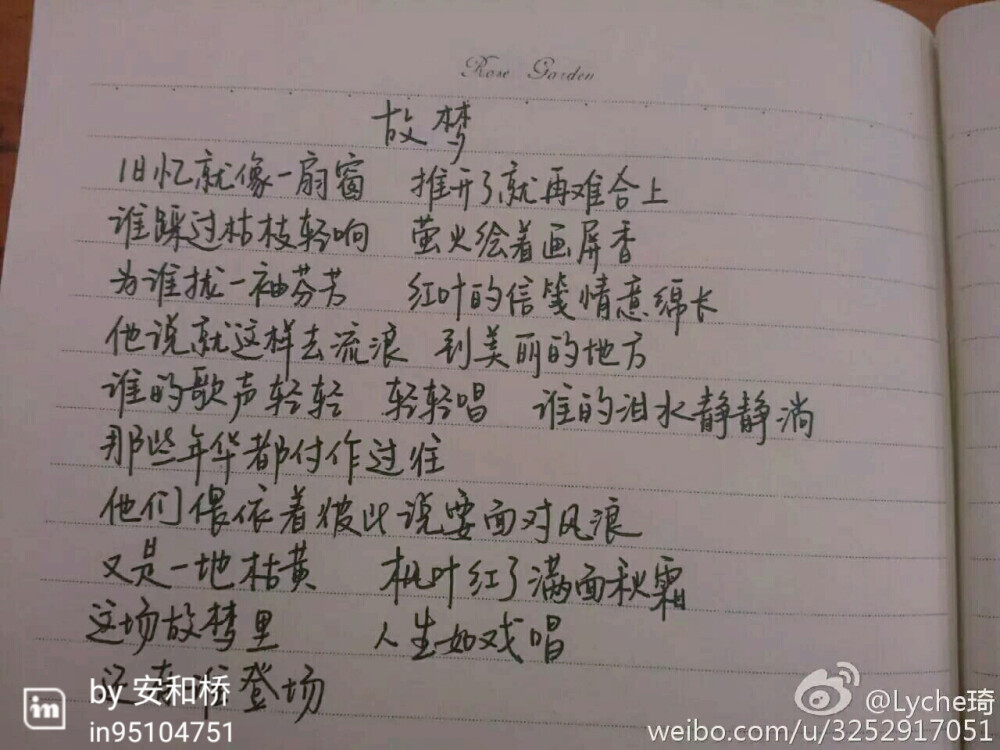 Rose Garden
故梦
旧忆就像一扇窗 推开了就再难合上
谁踩过枯枝轻响 萤火绘着画屏香
为谁拢一袖芬芳 红叶的信笺情意绵长
他说就这样去流浪 到美丽的地方
谁的歌声轻轻 轻轻唱 谁的泪水静静淌
那些年华都付作过往
他们偎依着彼此说要面对风浪
又是一地枯黄 枫叶红了满面秋霜
这场故梦里 人生如戏唱
登场
by 安和桥
in95104751
in
@Lyche琦
weibo.com/u/3252917051